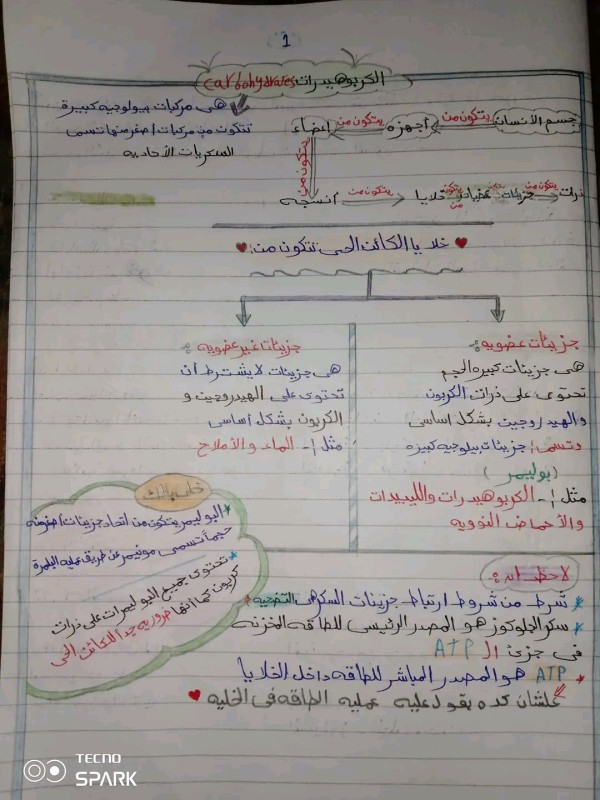 1
الكربوهيدرات carbohydrates
هى مركبات بيولوجيه كبيرة
تتكون من مركبات اصغر منها تسمى
السكريات الأحاديه
جسم الأنسان يتكون من أجهزه يتكون من أعضاء
يتكون من
أنسجه يتكون من خلايا يتكون من عضيات يتكون من جزيئات يتكون من ذرات
خلايا الكائن الحى تتكون من:
جزيئات عضويه:
هى جزيئات كبيره الجم
تحتوى على ذرات الكربون
والهيدروجين بشكل اساسى
وتسمى جزيئات بيلوجيه كبيره
(بوليمر)
مثل :- الكربوهيدرات والليبيدات
والأحماض النوويه
جزيئات غير عضويه:
هى جزيئات لا يشترط ان
تحتوى على الهيدروجين و
الكربون بشكل أساسى
مثل :- الماء والأملاح
خلى بالك
البوليمر يتكون من اتحاد جزيئات اصغر منه
حجماً تسمى مونيمر عن طريق عمليه البلمرة
تحتوى جميع البوليمرات على ذرات
كربون كما أنها ضروريه جداً للكائن الحى
لاحظ انه:
شرط من شروط ارتباط جزيئات السكر هى
سكر الجلوكوز هو المصدر الرئيسى للطاقه المخزنه
فى جزئ ال ATP
ATP هو المصدر المباشر للطاقه داخل الخلايا
علشان كده بقول عليه عمليه الطاقه فى الخليه
TECNO
SPARK